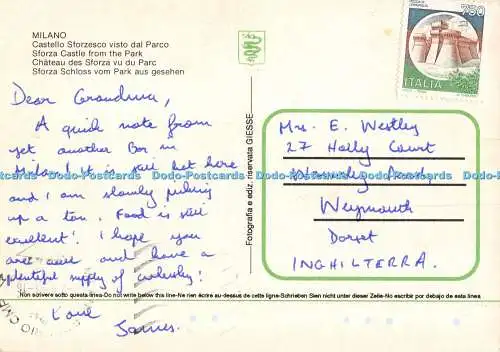 MILANO
Castello Sforzesco visto dal Parco
Sforza Castle from the Park
Château des Sforza vu du Parc
Sforza Schloss vom Park aus gesehen
Dear Grandma,
A quick note from
yet another Bar in
Milan! It is still hot here
and I am slowly picking
up a tan. Food is still
excellent! I hope you
are well and have a
plentiful supply of whisky!
Love
James.
Fotografia e ediz. riservata GIESSE
750
ITALIA
Mrs. E. Westley
27 Holly Court
Road,
Weymouth
Dorset
INGHILTERRA.
Non scrivere sotto questa linea-Do not write below this line-Ne rien écrire au-dessus de cette ligne-Schrieben Sien nicht unter dieser Zeile-No escribir por debajo de esta linea
Dodo-Postcards Dodo-Postcards Dodo-Postcards Dodo-Postcards